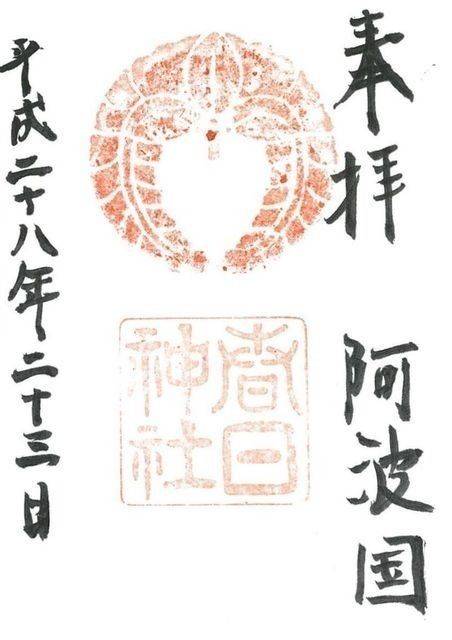 奉拝 阿波国
春日
神社
平成二十八年二十三日